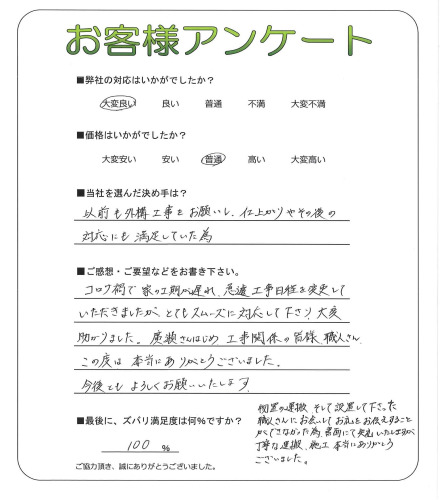 お客様アンケート
■弊社の対応はいかがでしたか?
大変良い 良い 普通 不満 大変不満
■価格はいかがでしたか?
大変安い 安い 普通 高い 大変高い
■当社を選んだ決め手は?
以前も外構工事をお願いし、仕上がりやその後の
対応にも満足していた為
■ご感想・ご要望などをお書き下さい。
コロナ禍で家の工期が遅れ、急遽工事日程を変更して
いただきましたが、とてもスムーズに対応して下さり、大変
助かりました。廣瀬さんはじめ工事関係の皆様、職人さん、
この度は本当にありがとうございました。
今後ともよろしくお願いいたします。
■最後に、ズバリ満足度は何%ですか?
100 %
ご協力頂き、誠にありがとうございました。
物置の運搬、そして設置して下さった
職人さんにお会いしてお礼をお伝えすること
ができなかった為、書面にて失礼いたしますが
丁寧な運搬、施工本当にありがとう
ございました。